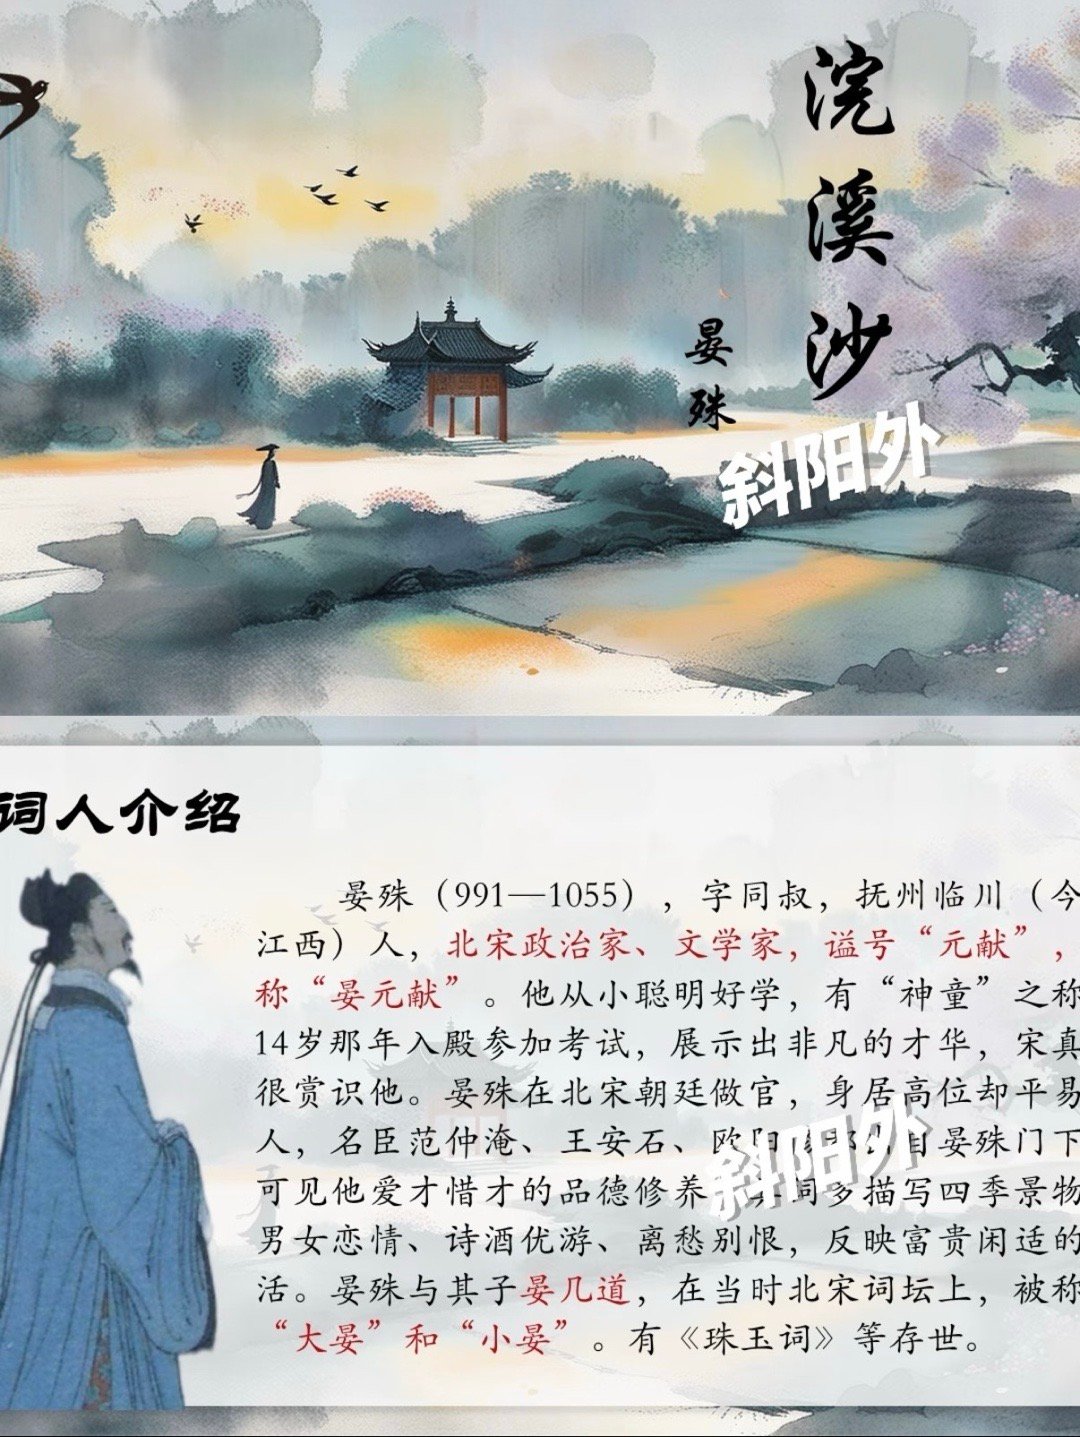 浣溪沙
晏殊
斜阳外
词人介绍
晏殊（991—1055），字同叔，抚州临川（今
江西）人，北宋政治家、文学家，谥号“元献”，
称“晏元献”。他从小聪明好学，有“神童”之称
14岁那年入殿参加考试，展示出非凡的才华，宋真
很赏识他。晏殊在北宋朝廷做官，身居高位却平易
人，名臣范仲淹、王安石、欧阳 自晏殊门下
可见他爱才惜才的品德修养 词多描写四季景物
男女恋情、诗酒优游、离愁别恨，反映富贵闲适的
活。晏殊与其子晏几道，在当时北宋词坛上，被称
“大晏”和“小晏”。有《珠玉词》等存世。
斜阳外